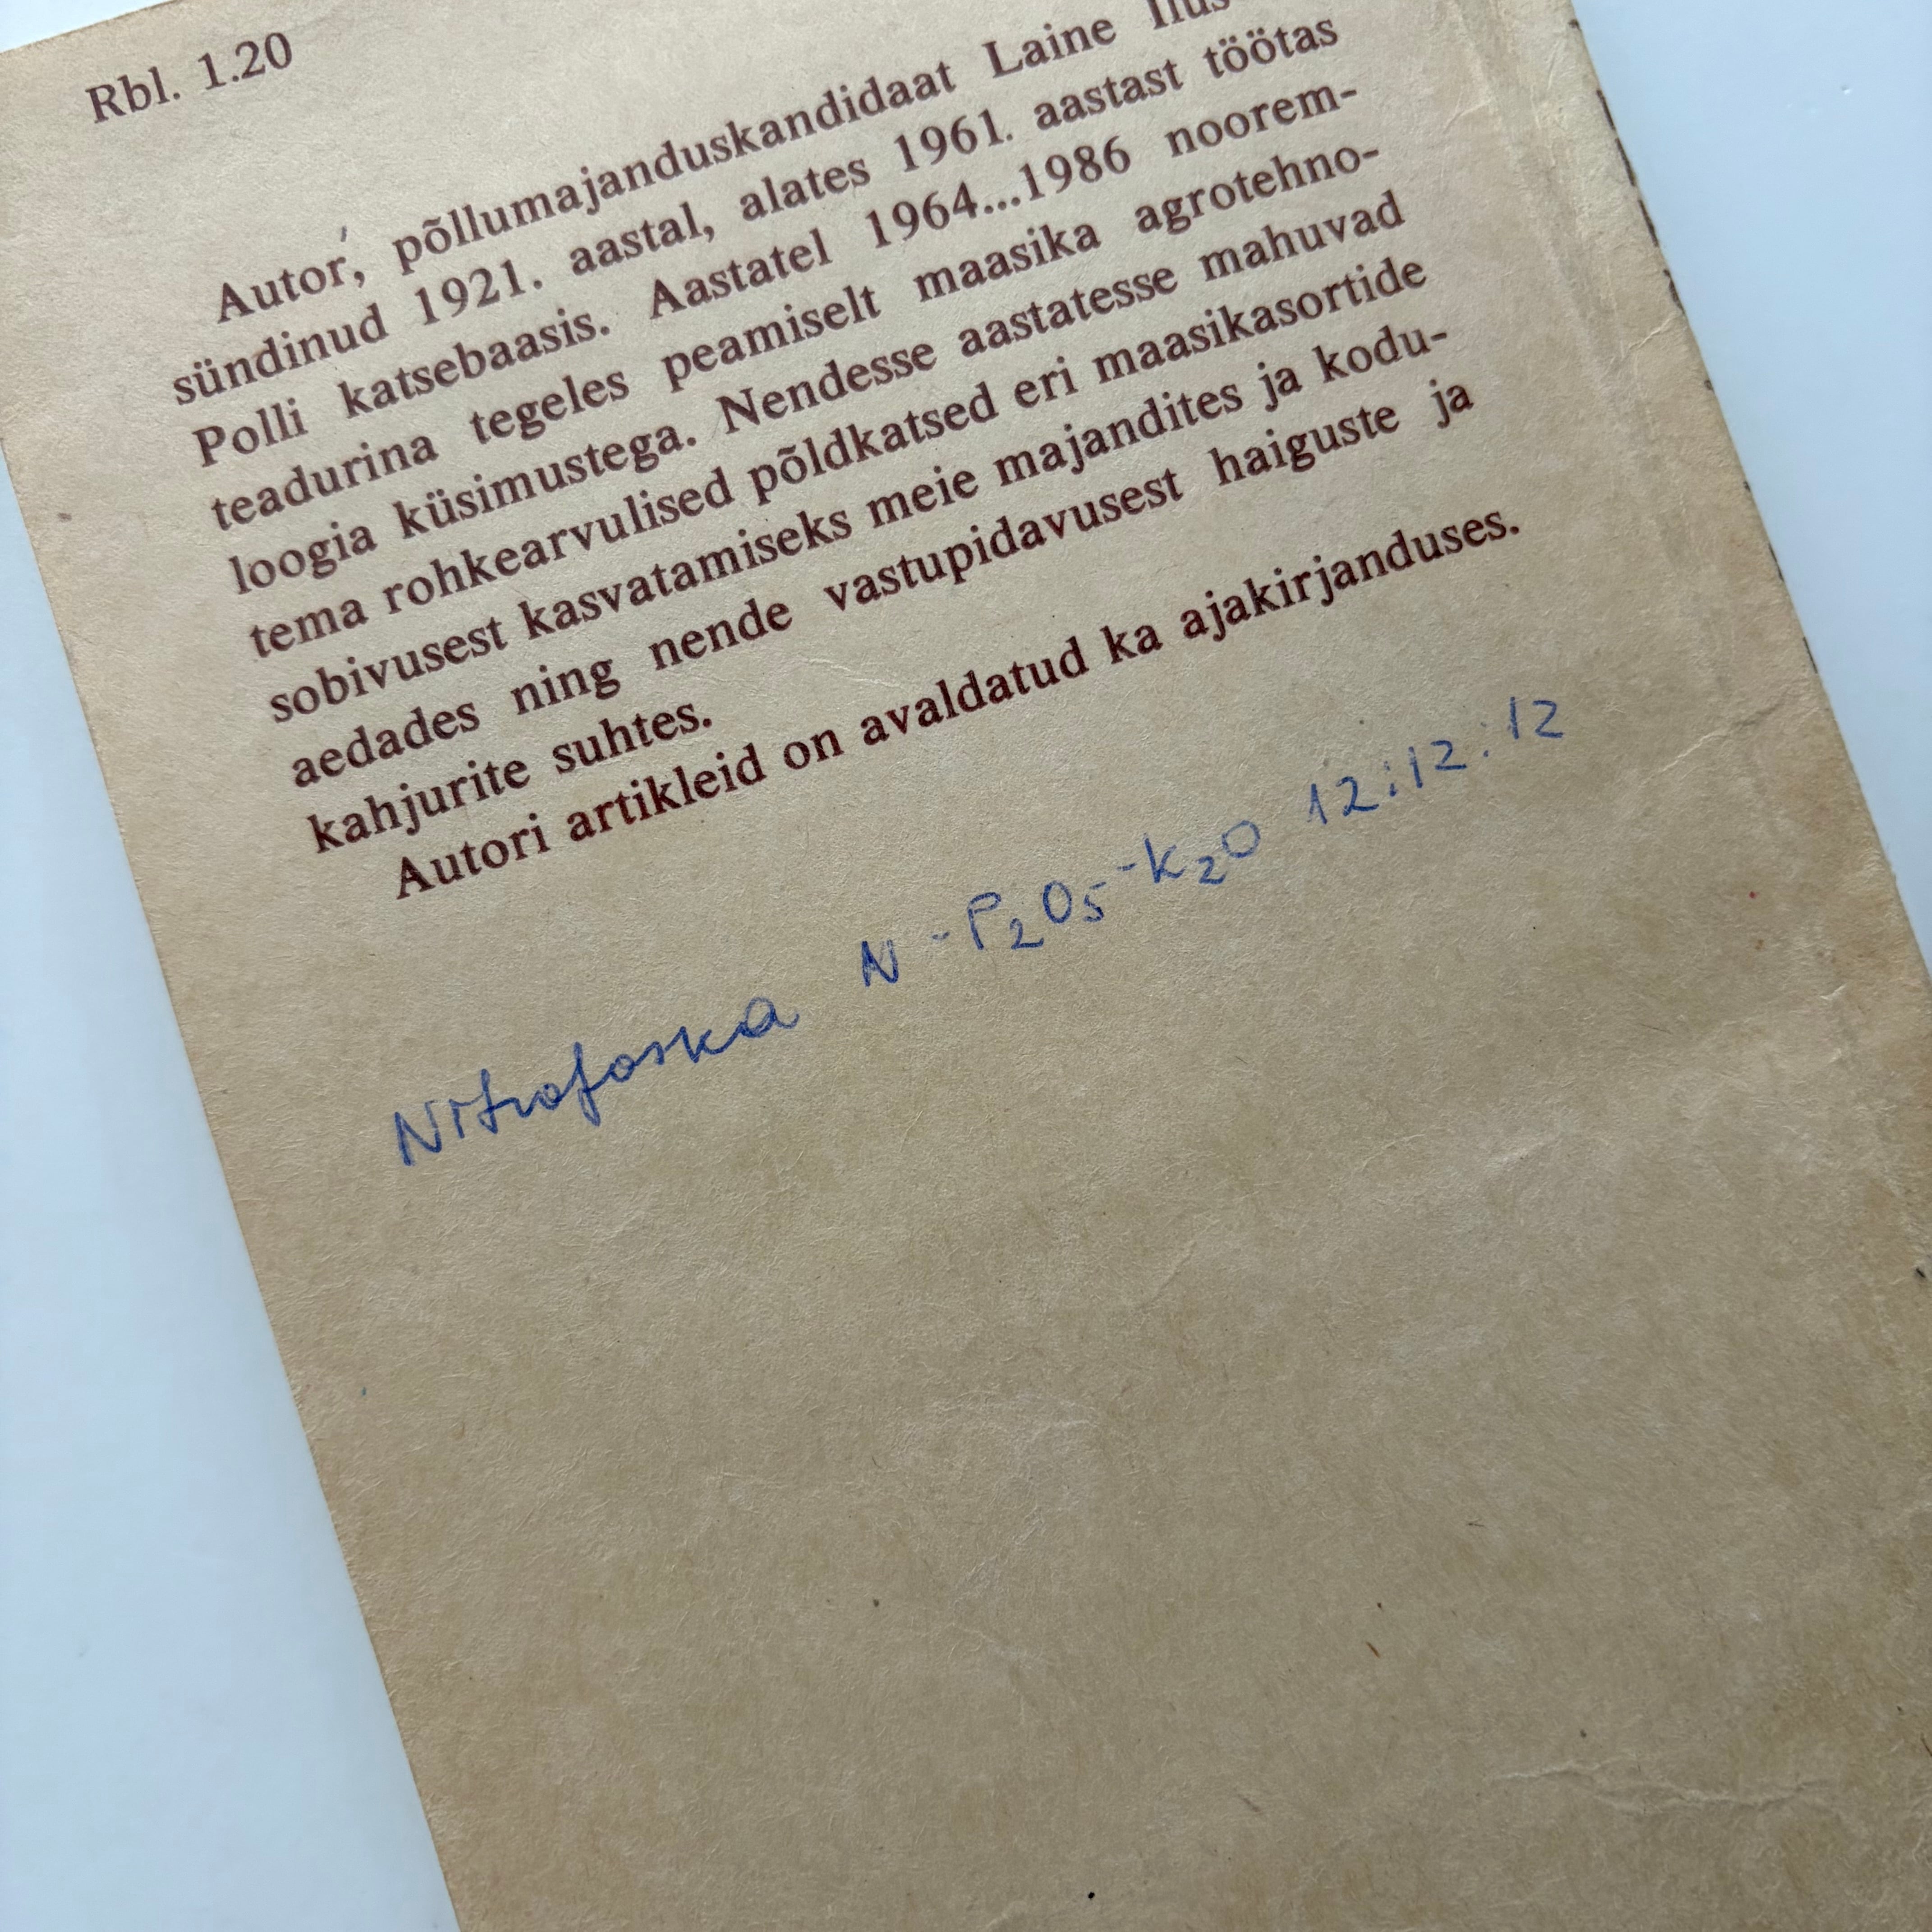 Rbl. 1.20
Autor, põllumajanduskandidaat Laine
sündinud 1921. aastal, alates 1961. aastast töötas
Polli katsebaasis. Aastatel 1964...1986 noorem-
teadurina tegeles peamiselt maasika agrotehno-
loogia küsimustega. Nendesse aastatesse mahuvad
tema rohkearvulised põldkatsed eri maasikasortide
sobivusest kasvatamiseks meie majandites ja kodu-
aedades ning nende vastupidavusest haiguste ja
kahjurite suhtes.
Autori artikleid on avaldatud ka ajakirjanduses.
Nitrofoska N - P₂O₅ - K₂O 12:12:12